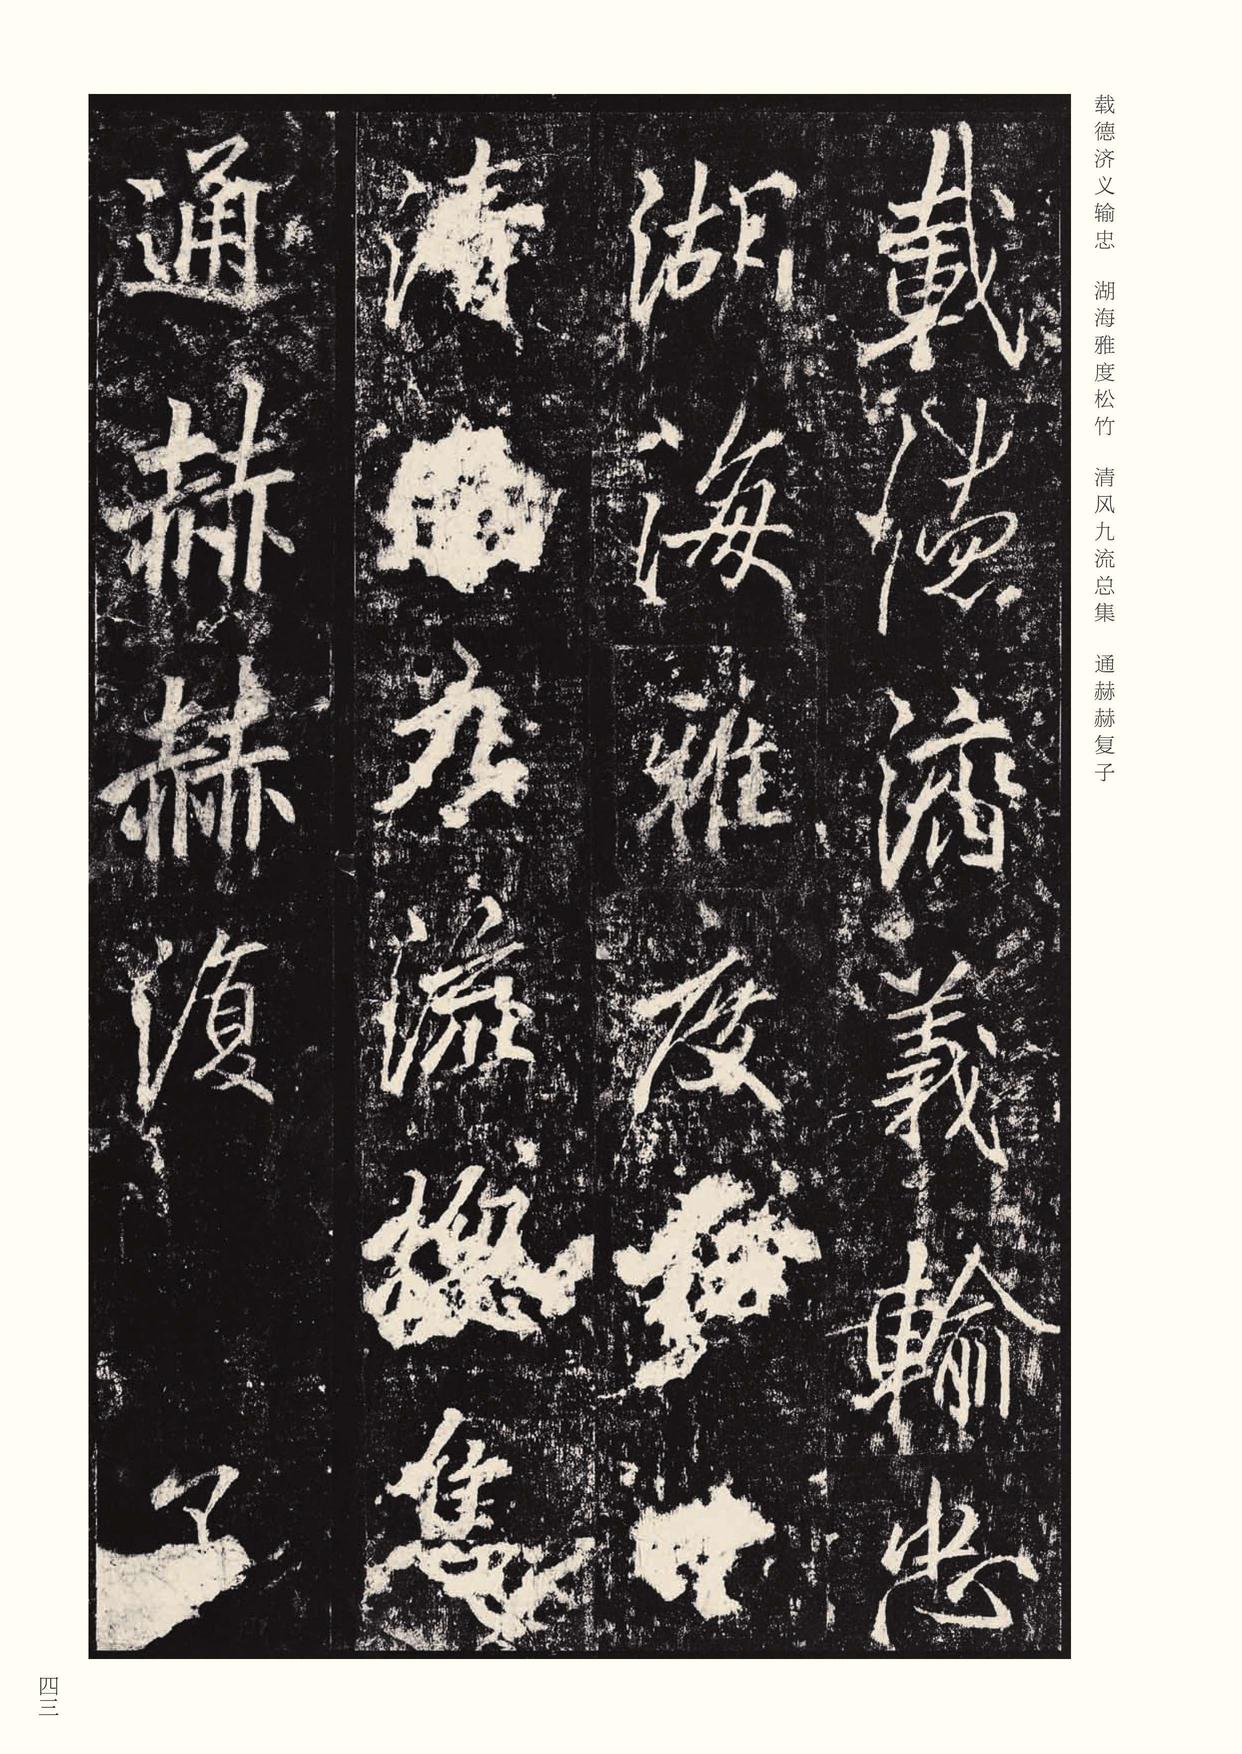 载德济义输忠 湖海雅度松竹 清风九流总集 通赫赫复子
戴德濟義輸忠
湖海雅度
清九流揔集
通赫赫復
四三